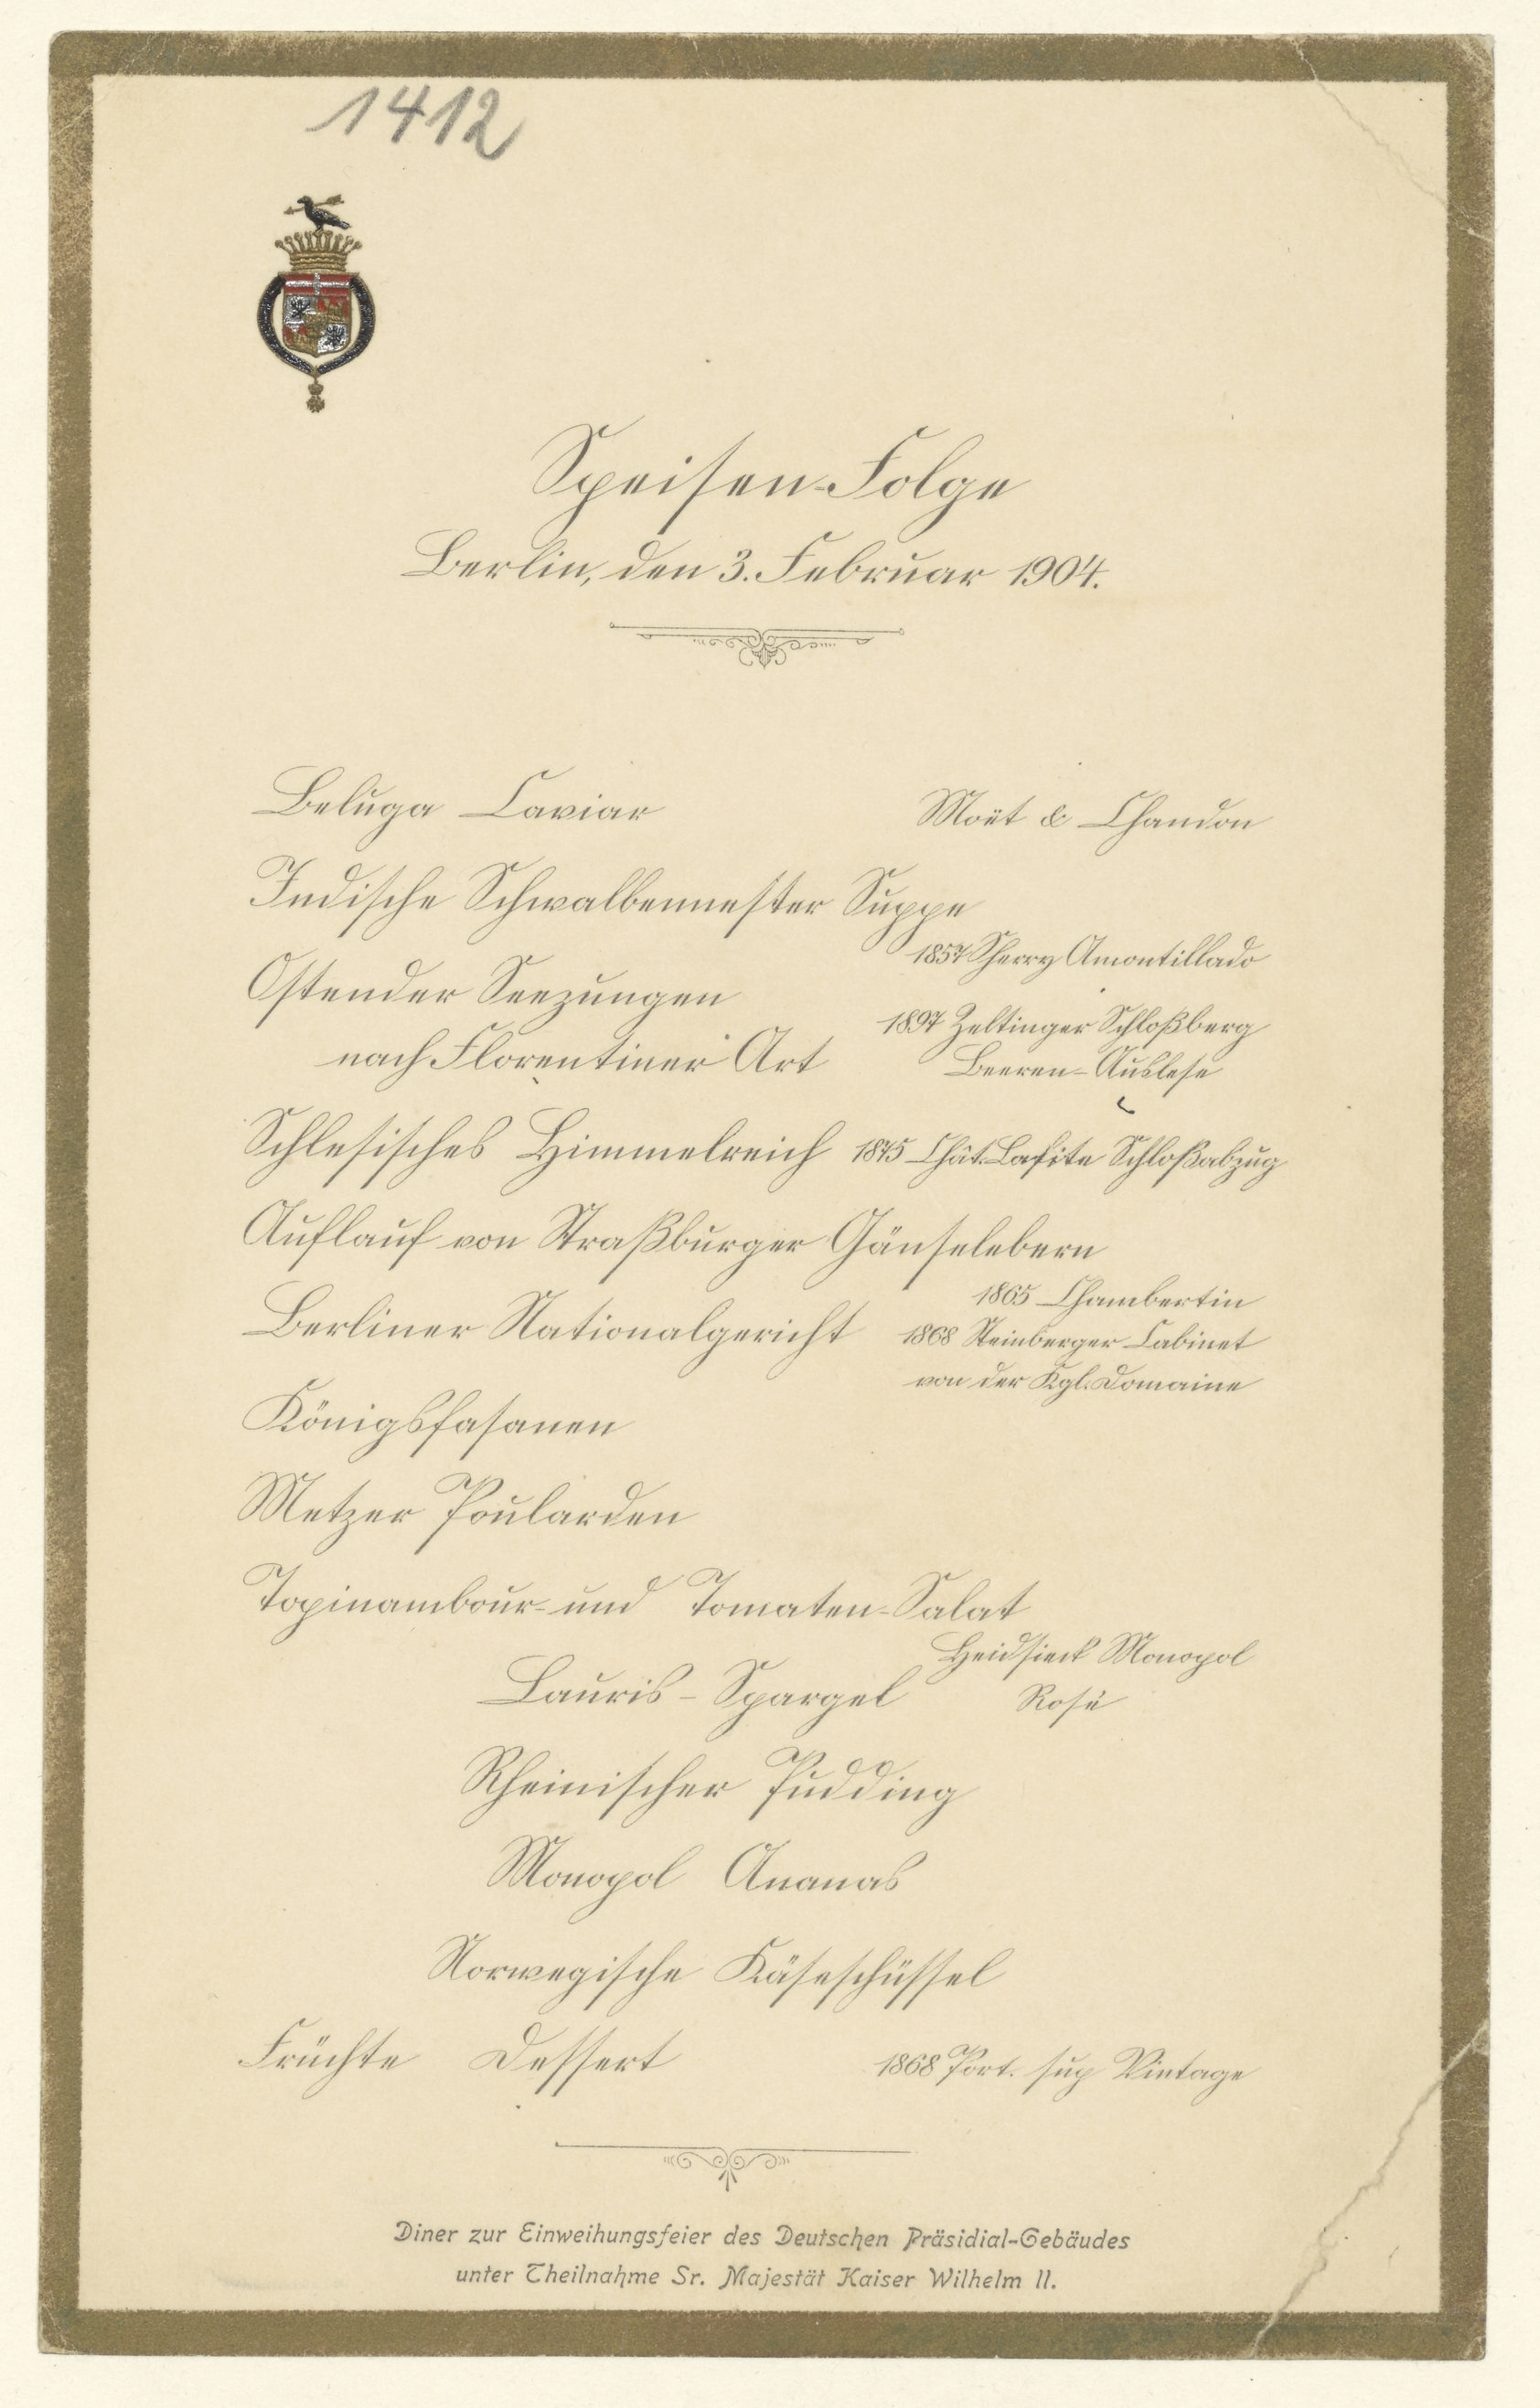 1412
Speisen-Folge
Berlin, den 3. Februar 1904.
Beluga Caviar
Moët & Chandon
Indische Schwalbennester Suppe
1857 Sherry Amontillado
Ostender Seezungen
nach Florentiner Art
1897 Zeltinger Schloßberg
Beeren-Auslese
Schlesisches Himmelreich
1875 Chât. Lafite Schloßabzug
Auflauf von Straßburger Gänselebern
1865 Chambertin
Berliner Nationalgericht
1868 Steinberger Cabinet
von der Kgl. Domaine
Königsfasanen
Metzer Poularden
Topinambour- und Tomaten-Salat
Heidsieck Monopol
Rosé
Lauris-Spargel
Rheinischer Pudding
Monopol Ananas
Norwegische Käseschüssel
Früchte Dessert
1868 Port. sup Vintage
Diner zur Einweihungsfeier des Deutschen Präsidial-Gebäudes
unter Theilnahme Sr. Majestät Kaiser Wilhelm II.